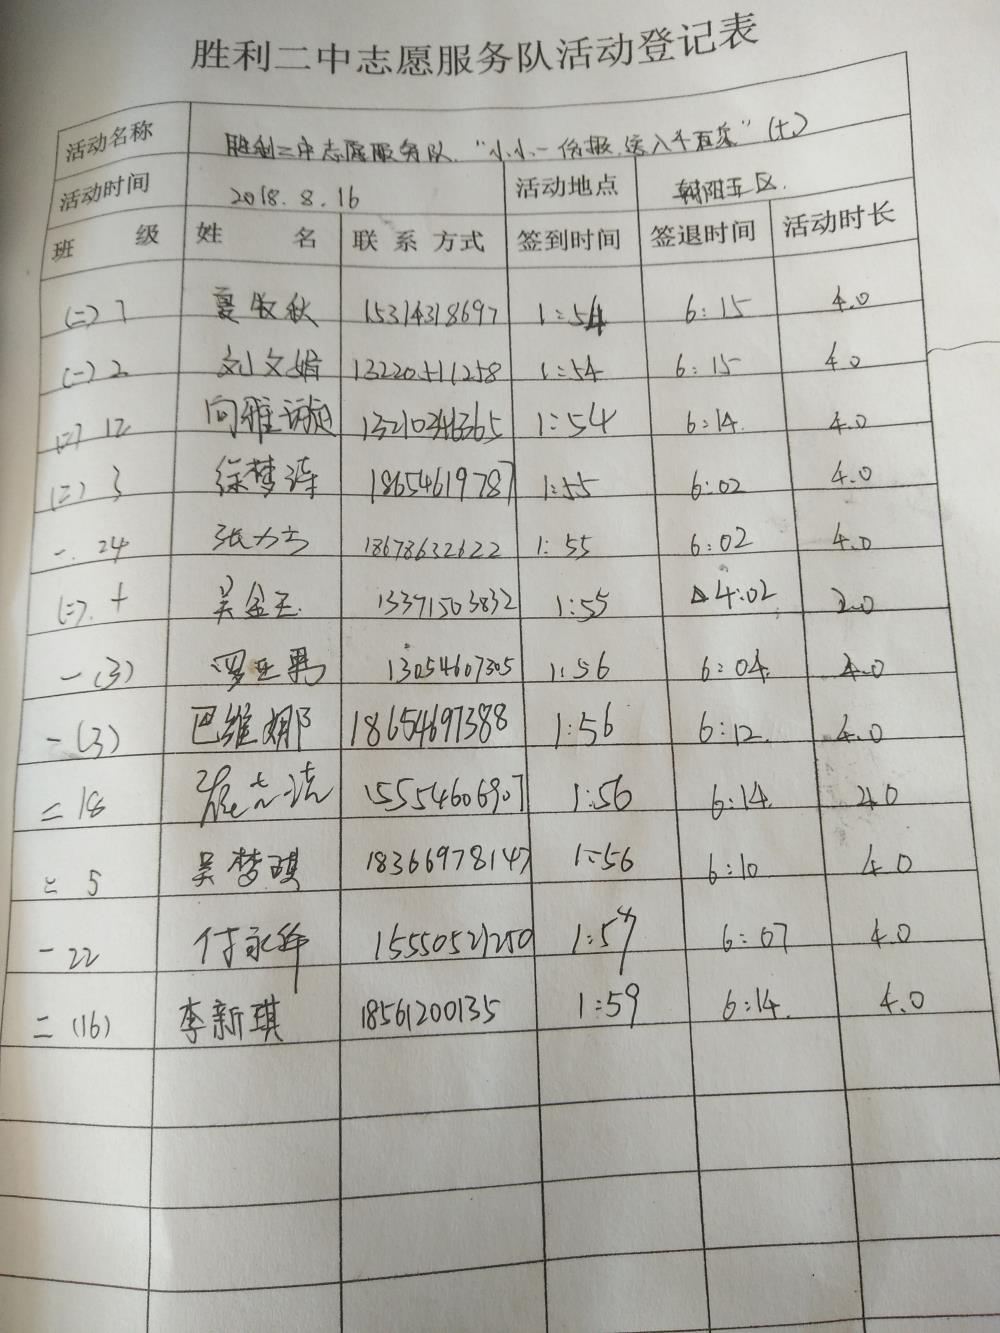 胜利二中志愿服务队活动登记表
活动名称 胜利二中志愿服务队“小小一份报,送入千百家”(十)
活动时间 2018.8.16 活动地点 朝阳五区.
班 级 姓 名 联系方式 签到时间 签退时间 活动时长
(二)7 夏牧秋 15314318697 1:54 6:15 4.0
(一)2 刘文娟 1:54 6:15 4.0
(二)12 向雅 1:54 6:14. 4.0
(二)3 徐梦 18654619787 1:55 6:02 4.0
一.24 张 18678632622 1:55 6:02 4.0
(二).十 吴金玉. 13371503832 1:55 △4:02 2.0
一(3) 罗亚男 13054607305 1:56 6:04. 4.0
一(3) 巴维娜 18654697388 1:56 6:12. 4.0
二18 15554606907 1:56 6:14. 4.0
二5 吴梦琪 18366978147 1:56 6:10 4.0
一22 付永 15550521250 1:57 6:07 4.0
二(16) 李新琪 18561200135 1:59 6:14. 4.0